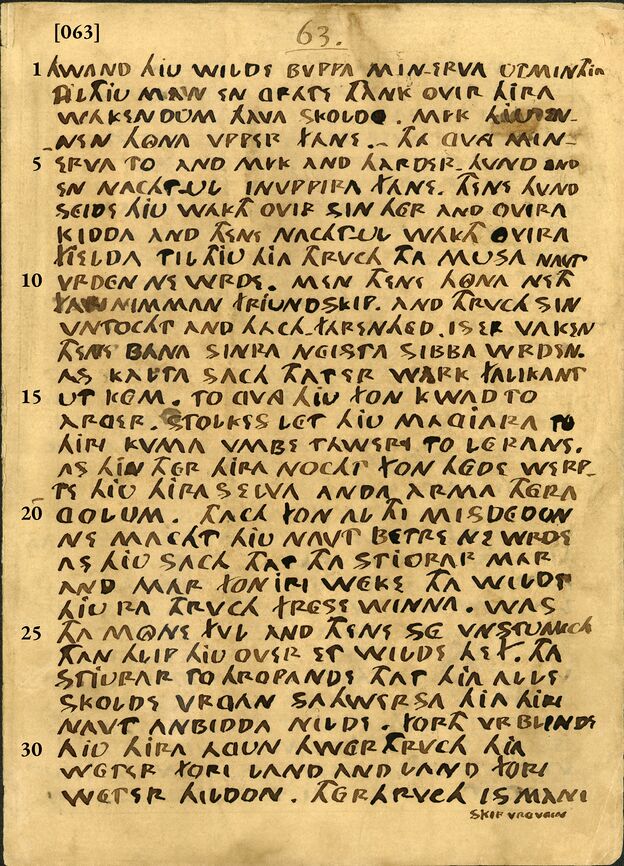 [063]
63.
1 HWAND HJU WILDE BUPPA MIN-ERVA UTMINTHJA
TIL THJU MAN EN GRATE THANK OVIR HIRA
WAKENDOM HAVA SKOLDE. MEK HJU EN-
NEN HONA VPPER FANE. THA GVNG MIN-
5 ERVA TO AND MEK AND HARDER-HUND AND
EN NACHT-UL INVPPIRA FANE. THENE HUND
SEIDE HJU WAKTH OVIR SIN HER AND OVIRA
KIDDA AND THENE NACHT-UL WAKTH OVIRA
FJELDA TIL THJU HJA THRVCH THA MUSA NAVT
10 VRDEN NE WRDE. MEN THENE HONA NETH
FARA NIMMAN FRIUNDSKIP. AND THRVCH SIN
VNTOCHT AND HACH-FARENHED. IS ER VAKEN
THENE BANA SINRA NEISTA SIBBA WRDEN.
AS KALTA SACH THAT ER WARK FALIKANT
15 UT KEM. TO GVNG HJU FON KWAD TO
ARGER. STOLKES LET HJU MAGJARA TO
HIRI KVMA VMBE TAWERY TO LERANE.
AS HJU THER HIRA NOCHT FON HEDE WERP-
TE HJU HIRA SELVA ANDA ARMA THERA
20 GOLUM. THACH FON AL THI MISDEDON
NE MACHT HJU NAVT BETRE NE WRDE
AS HJU SACH THAT THA STIURAR MAR
AND MAR FON IRI WEKE THA WILDE
HJU RA THRVCH FRESE WINNA. WAS
25 THA MONE FVL AND THENE SE VNSTUMICH
THAN HLIP HJU OVER ET WILDE HEF. THA
STJURAR TO HROPANDE THAT HJA ALLE
SKOLDE VRGAN SAHWERSA HJA HIRI
NAVT ANBIDDA NILDE. FORTH VRBLINDE
30 HJU HIRA AGUN HWERTHRVCH HJA
WETER FORI LAND AND LAND FORI
WETER HILDON. THERTHRVCH IS MANI
SKIP VRGVNGEN